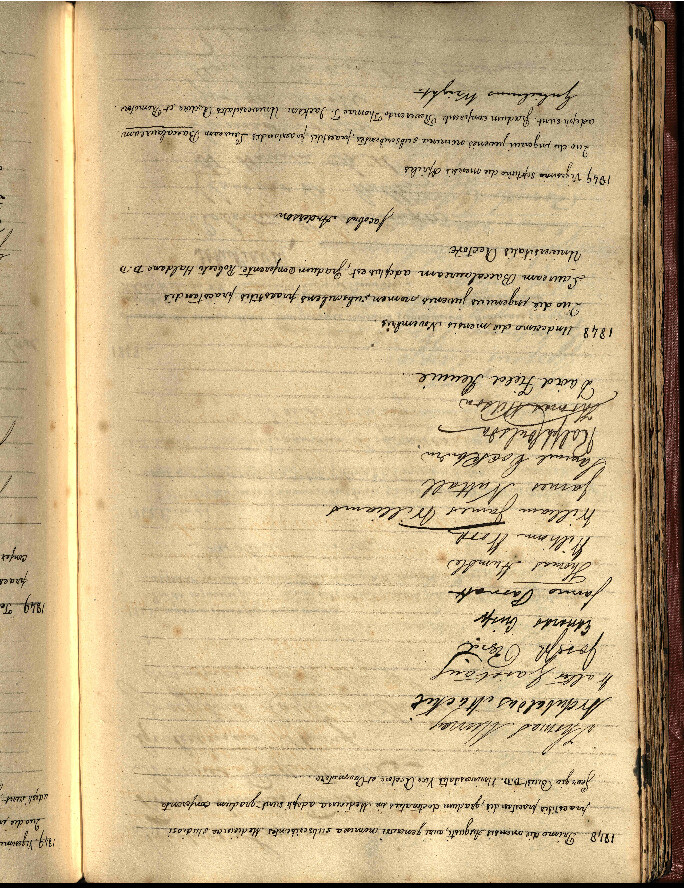 1848 Primo die mensis Augusti viri generosi nomina subscribentes Medicinae studiosi
praestitis praestandis, gradum doctoratus in Medicina adepti sunt gradum conferente
Georgio Buist D.D. Universitatis Vice Rectore et Promotore
Thomas Murray
Archibaldus Mackie
Walter Garstang
Joseph Ord
Edward Crisp
James Parratt
Thomas Humble
William Worp
William James Williams
James Nuttall
Samuel Cockburn
Ralph
Thomas Wilson
David Field Rennie
1848 Undecimo die mensis Novembris
Quo die ingenuus juvenis nomen subscribens praestitis praestandis
Lauream Baccalauream adeptus est, gradum conferente Roberto Haldane D.D
Universitatis Rectore
Jacobus Anderson
1849 Vigesimo septimo die mensis Aprilis
Quo die ingenui juvenes nomina subscribentes, praestitis praestandis Lauream Baccalauream
adepti sunt gradum conferente Reverendo Thoma T. Jackson Universitatis et Promotore.
Gulielmus Wright